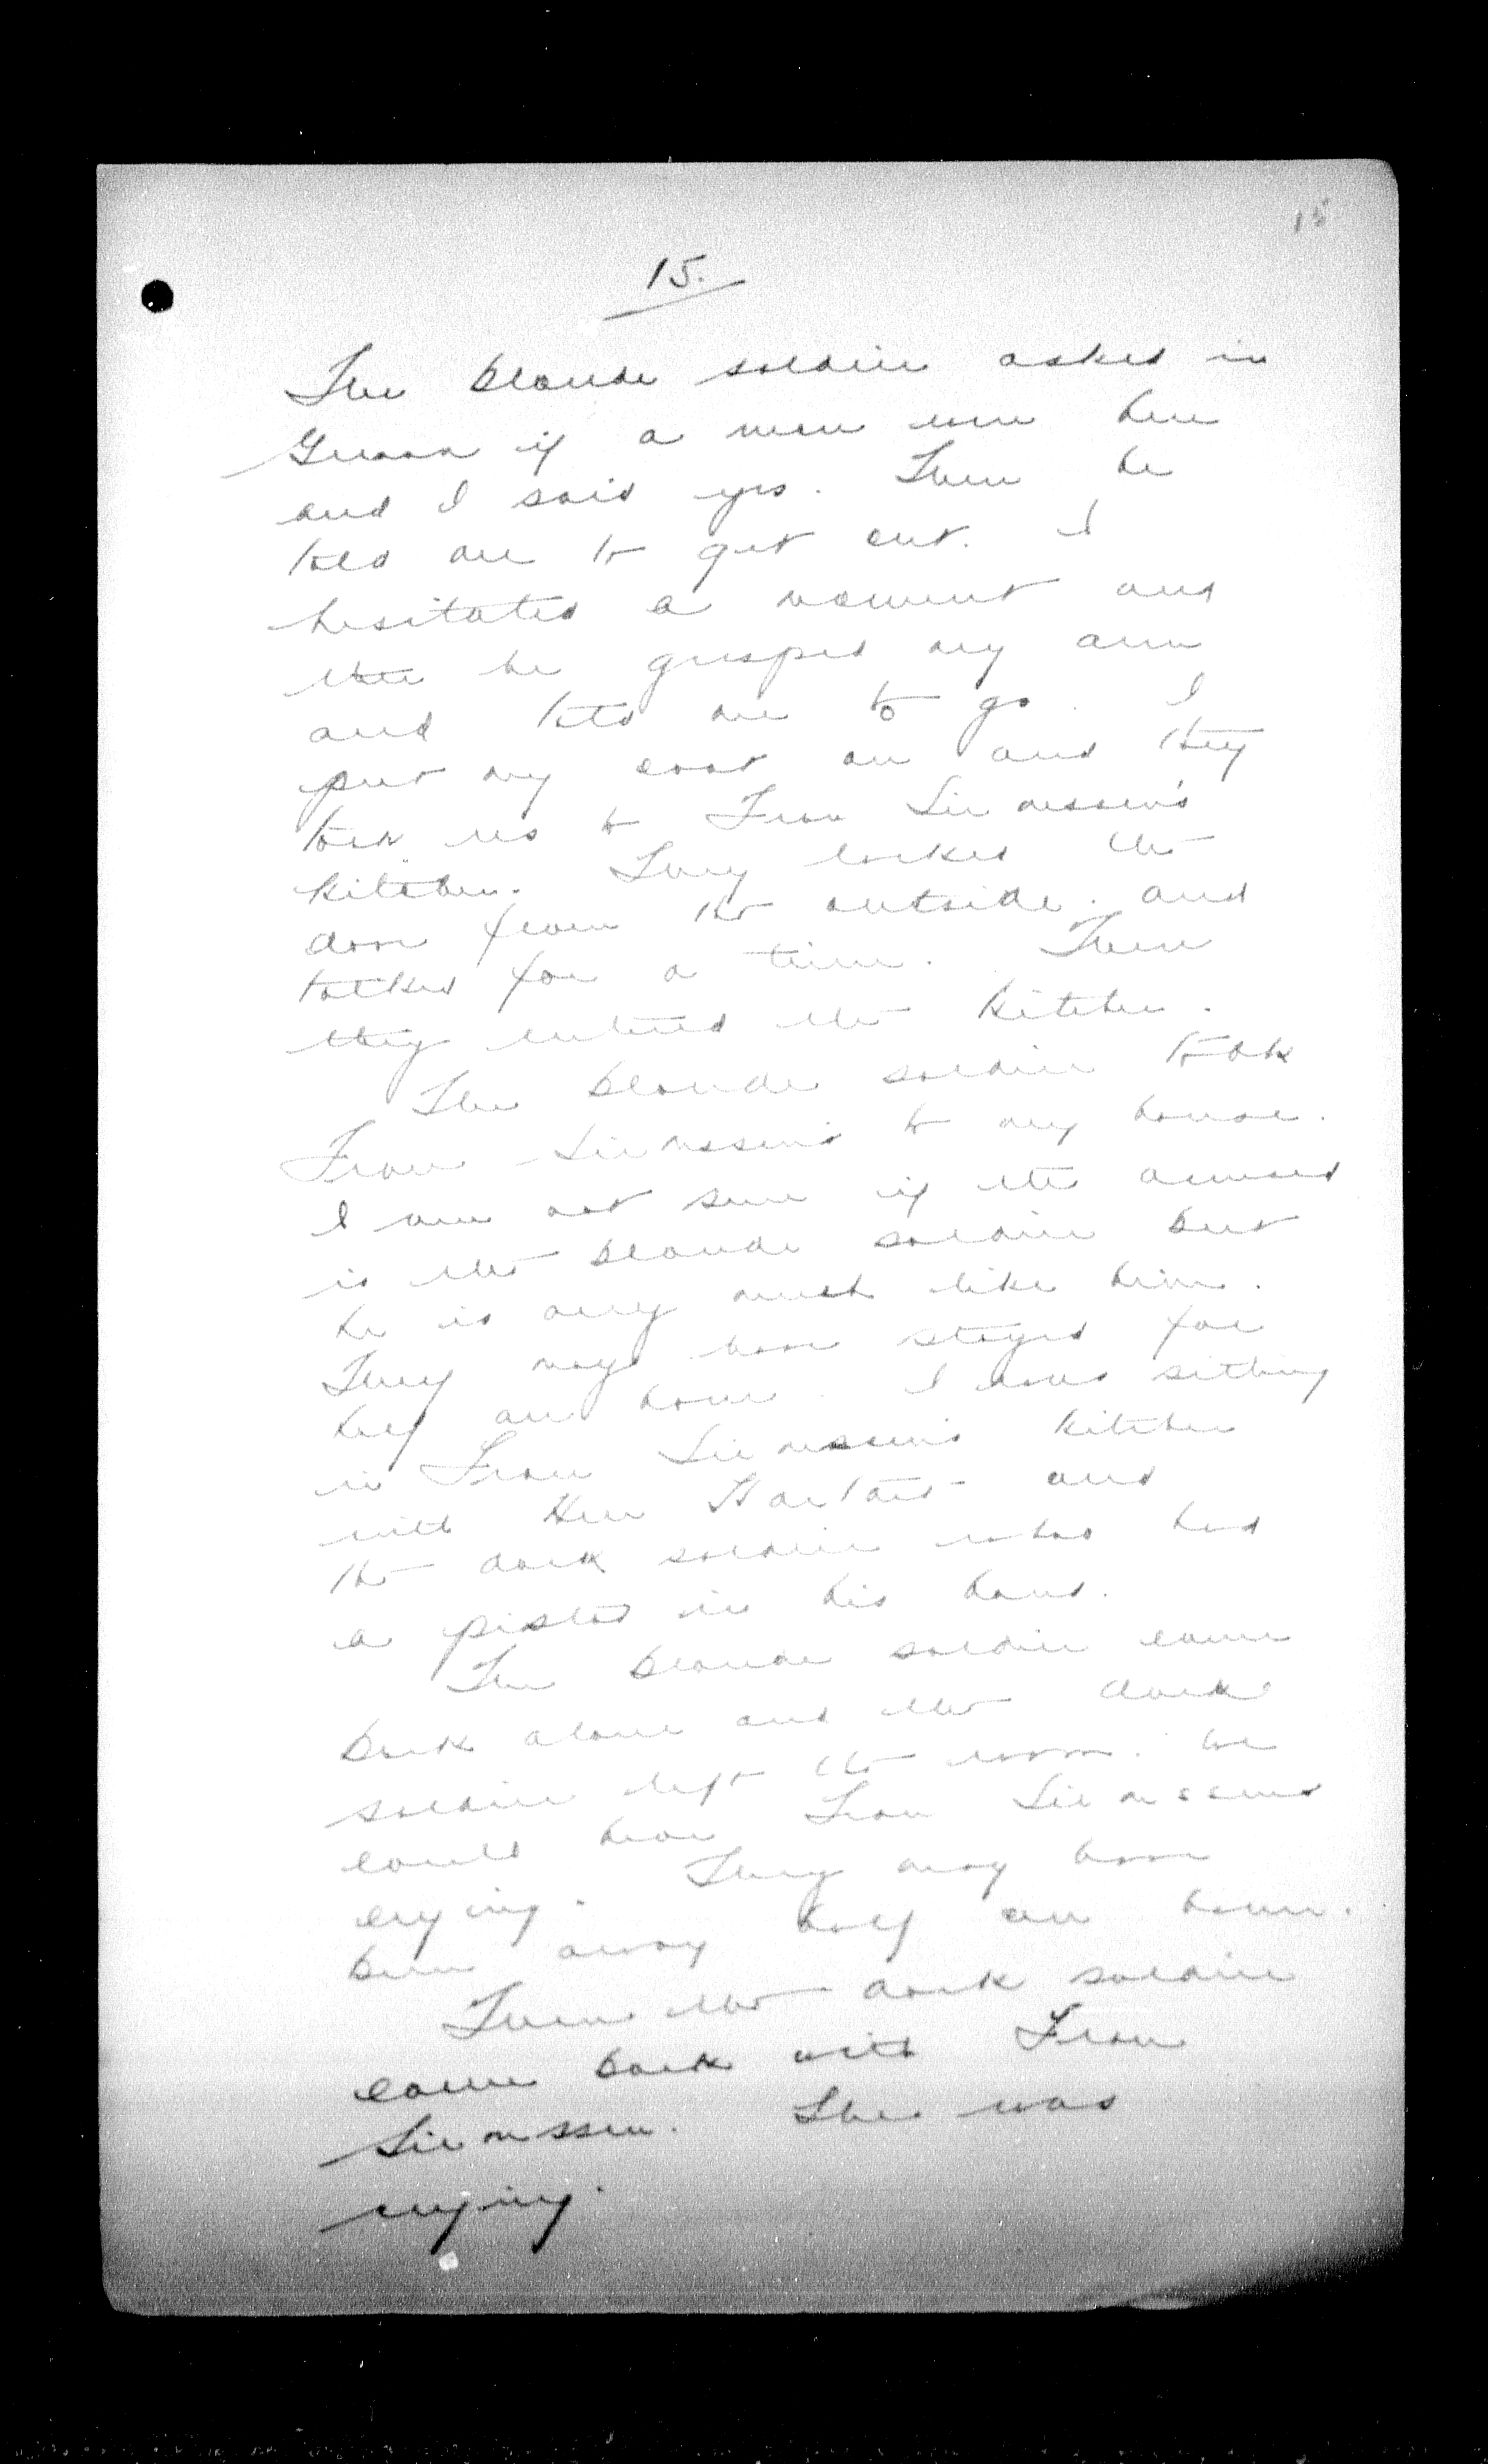 15
15.
The blonde soldier asked in
German if a man were here
and I said yes. Then he
told me to get out. I
hesitated a moment and
then he grasped my arm
and told me to go. I
put my coat on and they
took us to Frau Siemssen's
kitchen. They locked the
door from the outside. and
talked for a time. Then
they entered the kitchen.
The blonde soldier took
Frau Siemssen to my house.
I am not sure if the accused
is the blonde soldier but
he is very much like him.
They may have stayed for
half an hour. I was sitting
in Frau Siemssen's kitchen
with Herr and
the dark soldier who had
a pistol in his hand.
The blonde soldier came
back alone and the dark
soldier left the room. We
could hear Frau Siemssen
crying. They may have
been away half an hour.
Then the dark soldier
came back with Frau
Siemssen. She was
crying.